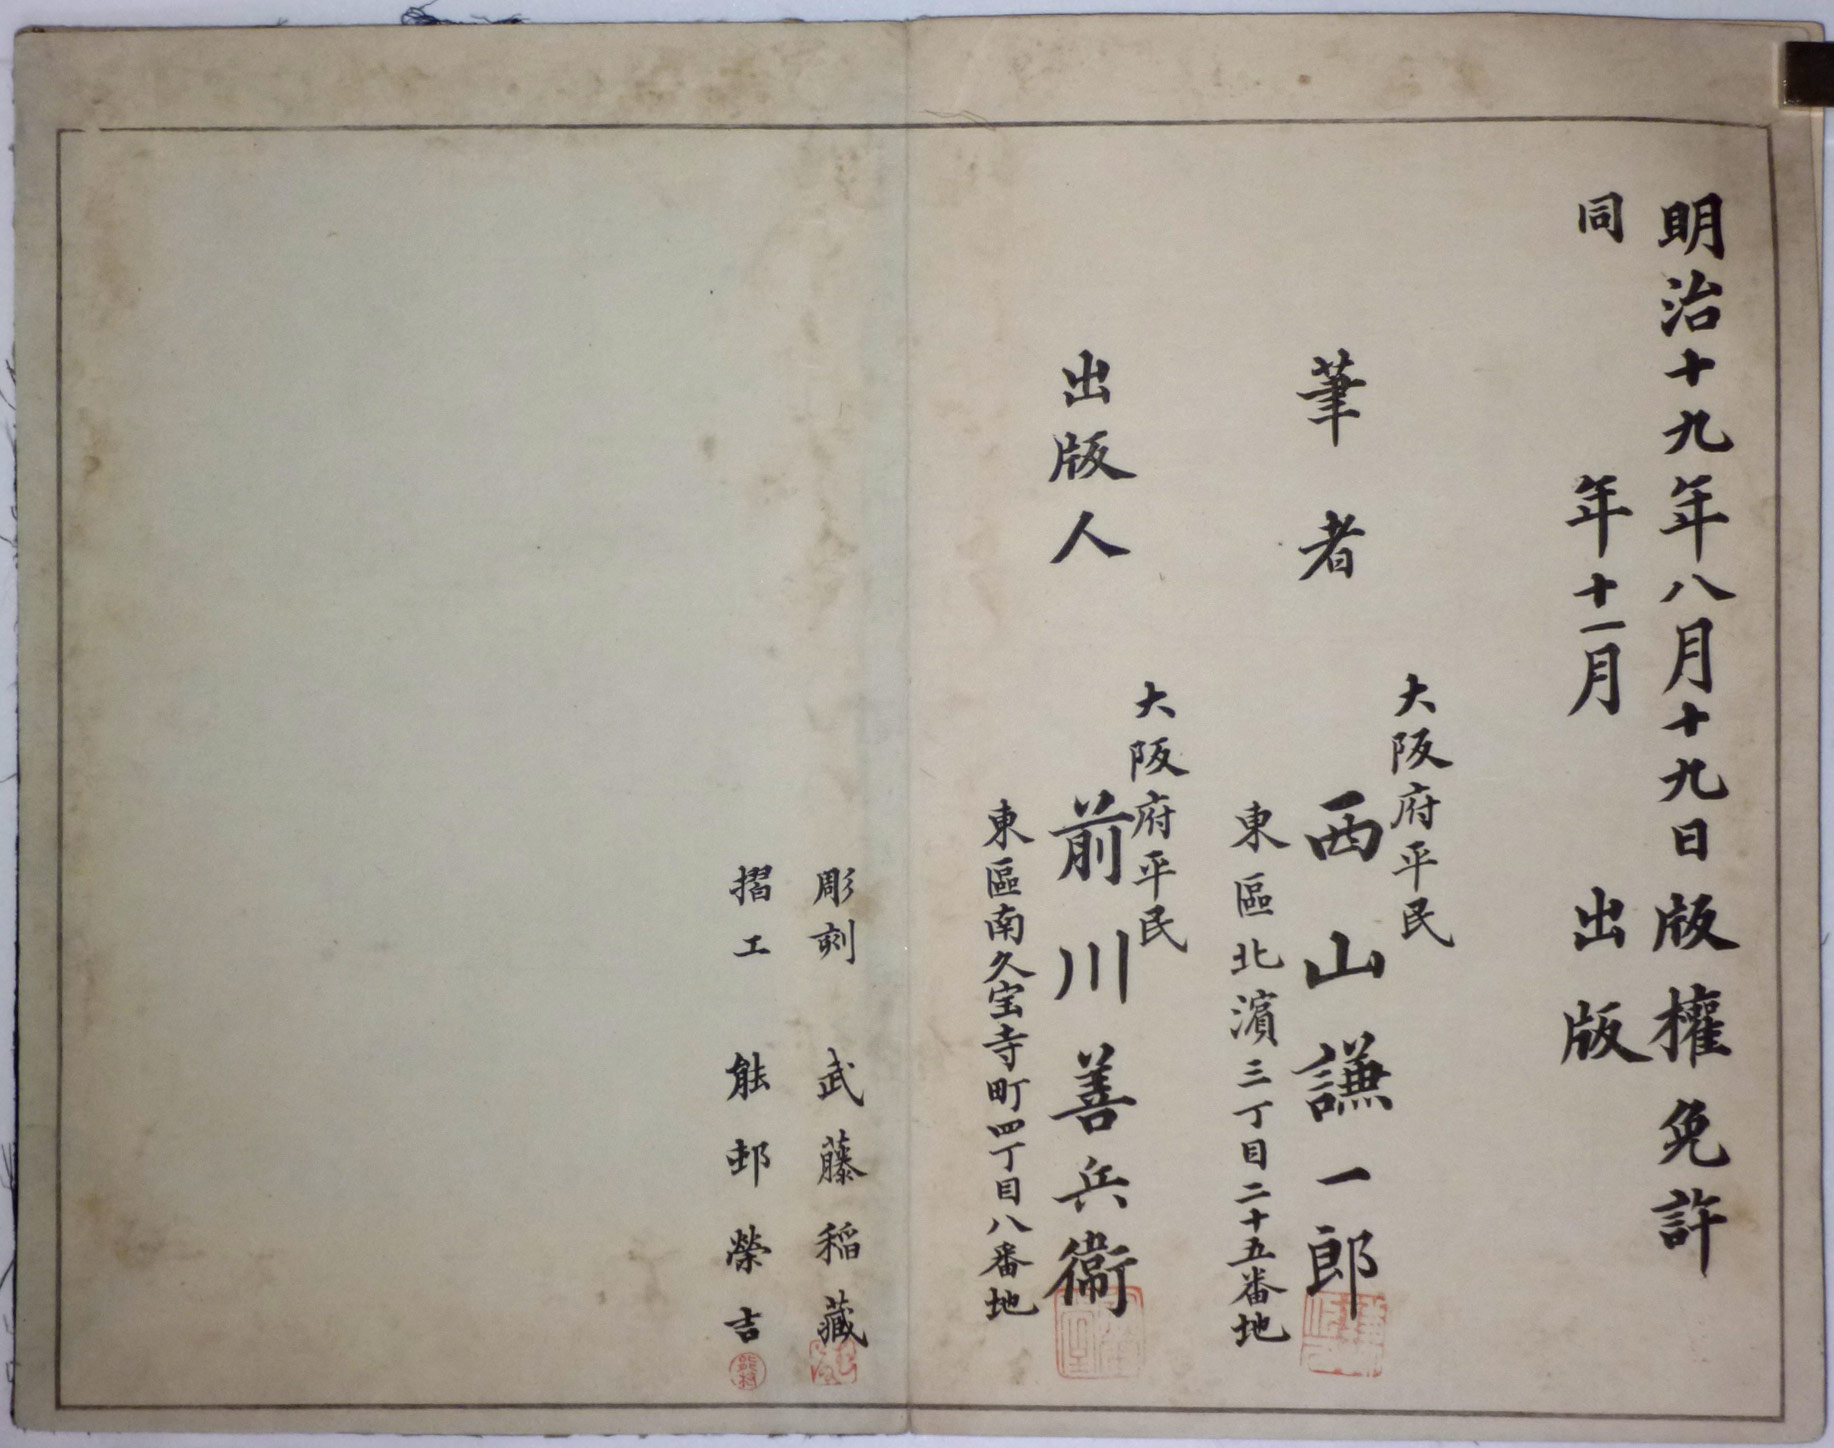 明治十九年八月十九日版權免許
同年十一月出版
筆者
大阪府平民
西山謙一郎
東區北濱三丁目二十五番地
出版人
大阪府平民
前川善兵衞
東區南久宝寺町四丁目八番地
彫刻 武藤稲藏
摺工 能邨榮吉